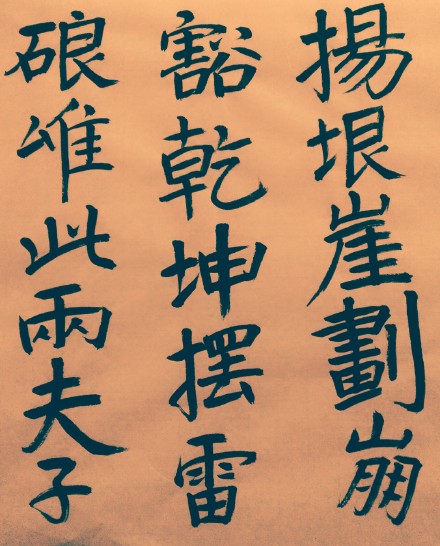 揚垠崖劃崩
豁乾坤摆雷
硠惟此兩夫子